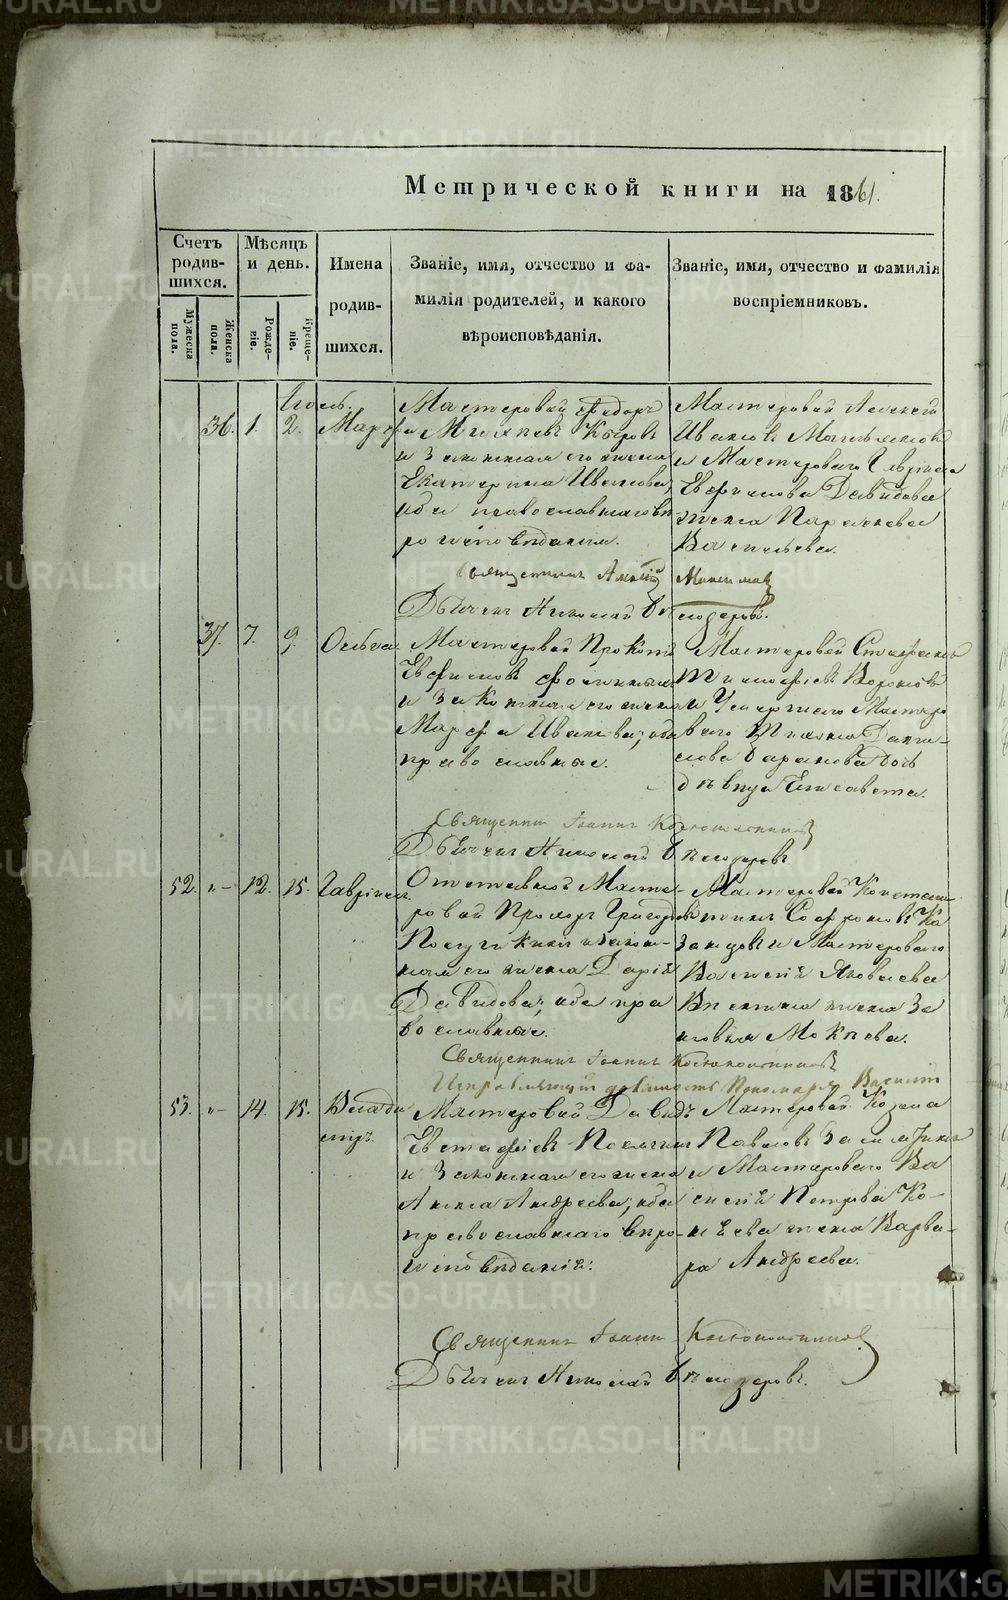 Метрической книги на 1861.
Счетъ родив-шихся.
Мужеска пола.
Женска пола.
Мѣсяцъ и день.
Рожде-ніе.
Креще-ніе.
Имена
родив-
шихся.
Званіе, имя, отчество и фа-
милія родителей, и какого
вѣроисповѣданія.
Званіе, имя, отчество и фамилія
воспріемниковъ.
Іюль.
36. 1. 2. Марѳа
Мастеровой Ѳедоръ
и законная его жена
Екатерина Иванова,
оба православнаго вѣ
роисповѣданія.
Мастеровой Алексей
Ивановъ
и Мастероваго Гавріила
Евфимова Давидова
жена Параскева
Васильева.
Священникъ
Дьячекъ Николай Бѣлозеровъ.
37. 7. 9. Ольга.
Мастеровой Прокопій
Евфимовъ
и законная его жена
Марѳа Иванова; оба
православные.
Мастеровой Стефанъ
Тимофѣевъ Вороновъ
и Умершаго Масте
роваго
лова Баранова дочь
дѣвица Елисавета.
Священникъ Іоаннъ
Дьячекъ Николай Бѣлозеровъ
52. „– 12. 15. Гавріилъ
Отставной Масте-
ровой Прохоръ Григорьевъ
и закон-
ная его жена Дарія
Давидова; оба пра
вославные.
Мастеровой Констан
тинъ Софроновъ Ка
занцовъ и Мастероваго
Василія Яковлева
жена Зи
новья Мокѣева.
Священникъ Іоаннъ
Исправляющій должность Пономаря Василій
53. „– 14. 15. Влади
міръ.
Мастеровой Давидъ
Евстафіевъ
и законная его жена
Анна Андреева; оба
православнаго вѣро-
исповѣданія.
Мастеровой Козма
Павловъ
и Мастероваго Ва
силія Петрова Ко-
нѣева жена Варва-
ра Андреева.
Священникъ Іоаннъ
Дьячекъ Николай Бѣлозеровъ.
METRIKI.GASO-URAL.RU